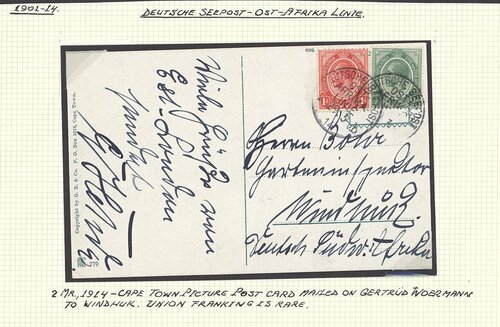 1901-14.
DEUTSCHE SEEPOST-OST-AFRIKA LINIE.
Copyright by G. B. & Co. P. O. Box 1618, Cape Town.
Viele Grüße von
Est-London
sendet
1015
Herrn Bohr
Garteninspektor
Windhuk.
Deutsch Südwest Afrika
2 MR., 1914-CAPE TOWN PICTURE POST CARD MAILED ON GERTRÜD WOERMANN
TO WINDHUK. UNION FRANKING IS RARE.